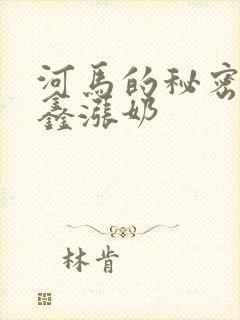 河马的秘密
鑫涨奶
林肯